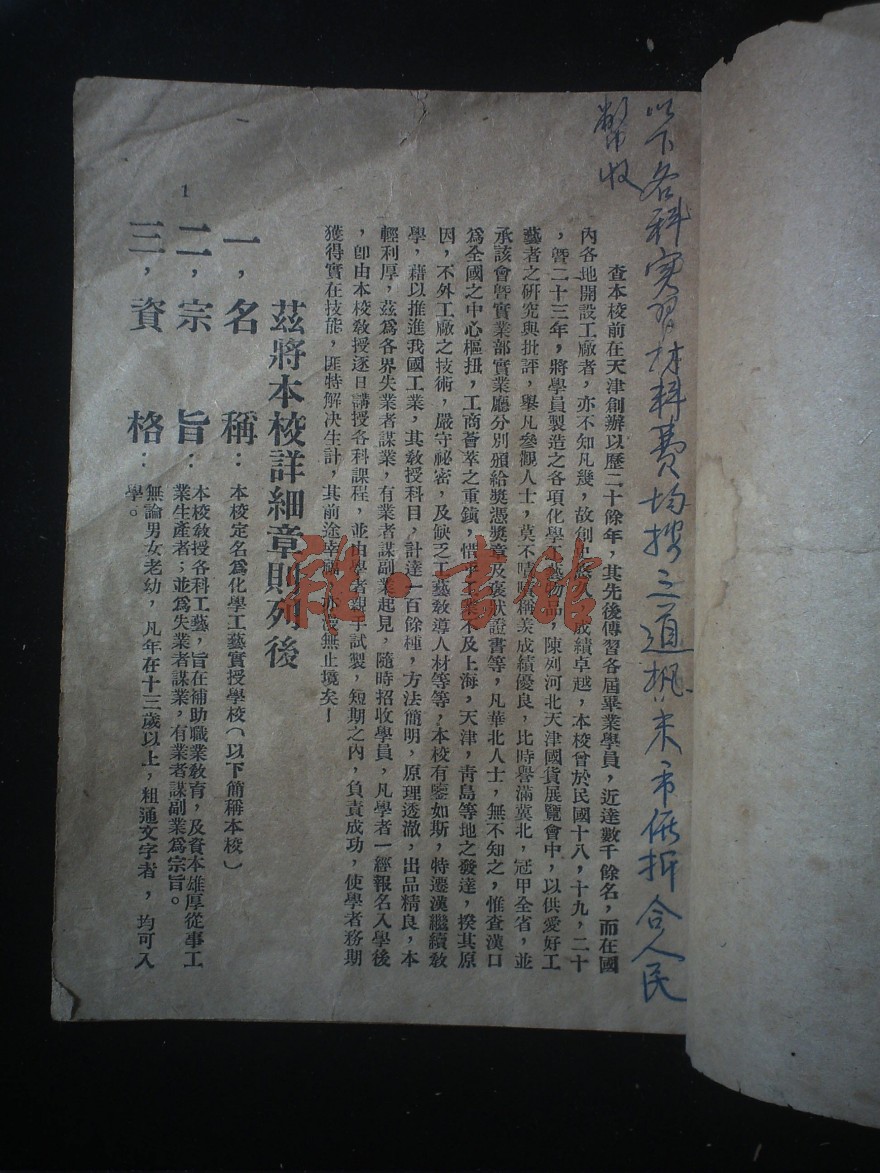 以下各科實習材料費均按之道機米市價折合人民
幣收
查本校前在天津創辦以歷二十餘年，其先後傳習各屆畢業學員，近達數千餘名，而在國
內各地開設工廠者，亦不知凡幾，故創辦悠久，成績卓越，本校曾於民國十八，十九，二十
，曁二十三年，將學員製造之各項化學工藝物品，陳列河北天津國貨展覽會中，以供愛好工
藝者之研究與批評，舉凡參觀人士，莫不嘖嘖稱美成績優良，比時譽滿冀北，冠甲全省，並
承該會曁實業部實業廳分別頒給獎憑獎章及褒狀證書等，凡華北人士，無不知之，惟查漢口
爲全國之中心樞扭，工商薈萃之重鎭，惜乎工業不及上海，天津，靑島等地之發達，揆其原
因，不外工廠之技術，嚴守祕密，及缺乏工藝敎導人材等等，本校有鑒如斯，特遷漢繼續敎
學，藉以推進我國工業，其敎授科目，計達一百餘種，方法簡明，原理透澈，出品精良，本
輕利厚，茲爲各界失業者謀業，有業者謀副業起見，隨時招收學員，凡學者一經報名入學後
，卽由本校敎授逐日講授各科課程，並由學者親手試製，短期之內，負責成功，使學者務期
獲得實在技能，匪特解決生計，其前途幸福亦復無止境矣！
茲將本校詳細章則列後
一，名　稱：本校定名爲化學工藝實授學校（以下簡稱本校）
二，宗　旨：本校敎授各科工藝，旨在補助職業敎育，及資本雄厚從事工
業生產者；並爲失業者謀業，有業者謀副業爲宗旨。
三，資　格：無論男女老幼，凡年在十三歲以上，粗通文字者，均可入
學。
1
雜·書館